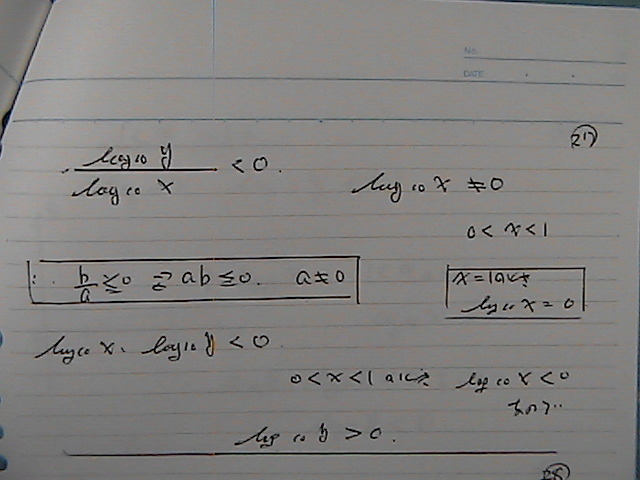 NO.
DATE . .
㉗
log₁₀ y / log₁₀ x < 0.
log₁₀ x ≠ 0
0 < x < 1
∵ b/a ≦ 0 ⇄ ab ≦ 0. a ≠ 0
x = 1 のとき
log₁₀ x = 0
log₁₀ x · log₁₀ y < 0.
0 < x < 1 のとき log₁₀ x < 0
log₁₀ y > 0.